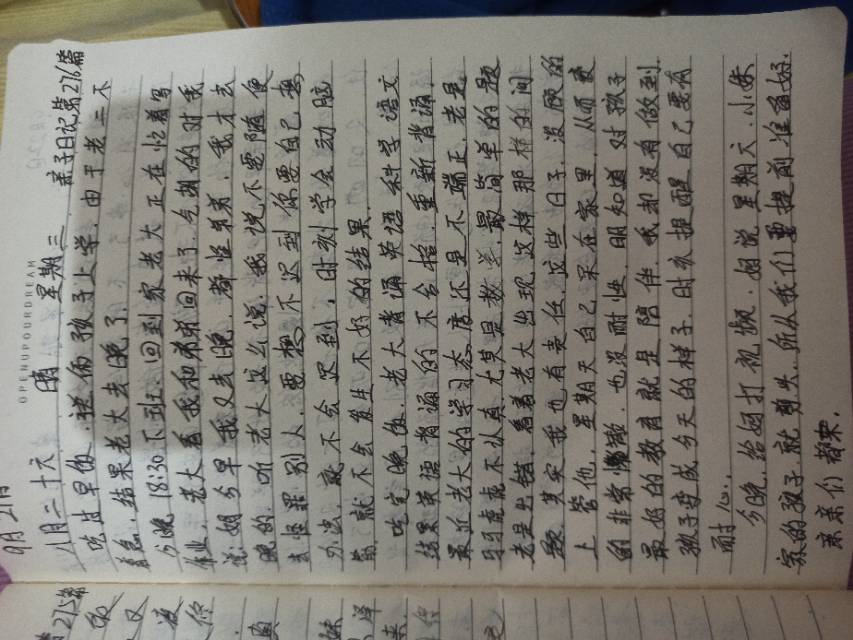 OPENUPOURDREAM
9月21日
八月二十六 晴 星期三 亲子日记第276篇
吃过早饭,送俩孩子上学,由于老二不
着急,结果老大去晚了。
今晚18:30下班,回到家老大正在忙着写
作业,老大看我和弟弟回来了,生气的对我
说妈今早我又去晚,都怪弟弟,我才去
晚的,听老大这么说,我说不要随便
去怪罪别人,要想不迟到你要自己想
办法,就不会迟到,时刻学会动脑
筋就不会发生不好的结果。
吃完晚饭,老大背诵英语 科学 语文
结果英语背诵的不合格,重新背诵,
最近老大的学习态度还是不端正,老是
马马虎虎不认真,尤其是数学,最简单的题
老是出错,看着老大出现这样那样的问
题,其实我也有责任,这些日子,没顾的
上管他,星期天自己呆在家里,从而变
的非常懒散,也没耐性,明知道对孩子
最好的教育就是陪伴,我却没有做到,
孩子变成今天的样子,时刻提醒自己要有
耐心。
今晚,给妈打视频,妈说星期天,小妹
家的孩子就剪头,所以我们要提前准备好,
亲亲们都来。
第275篇